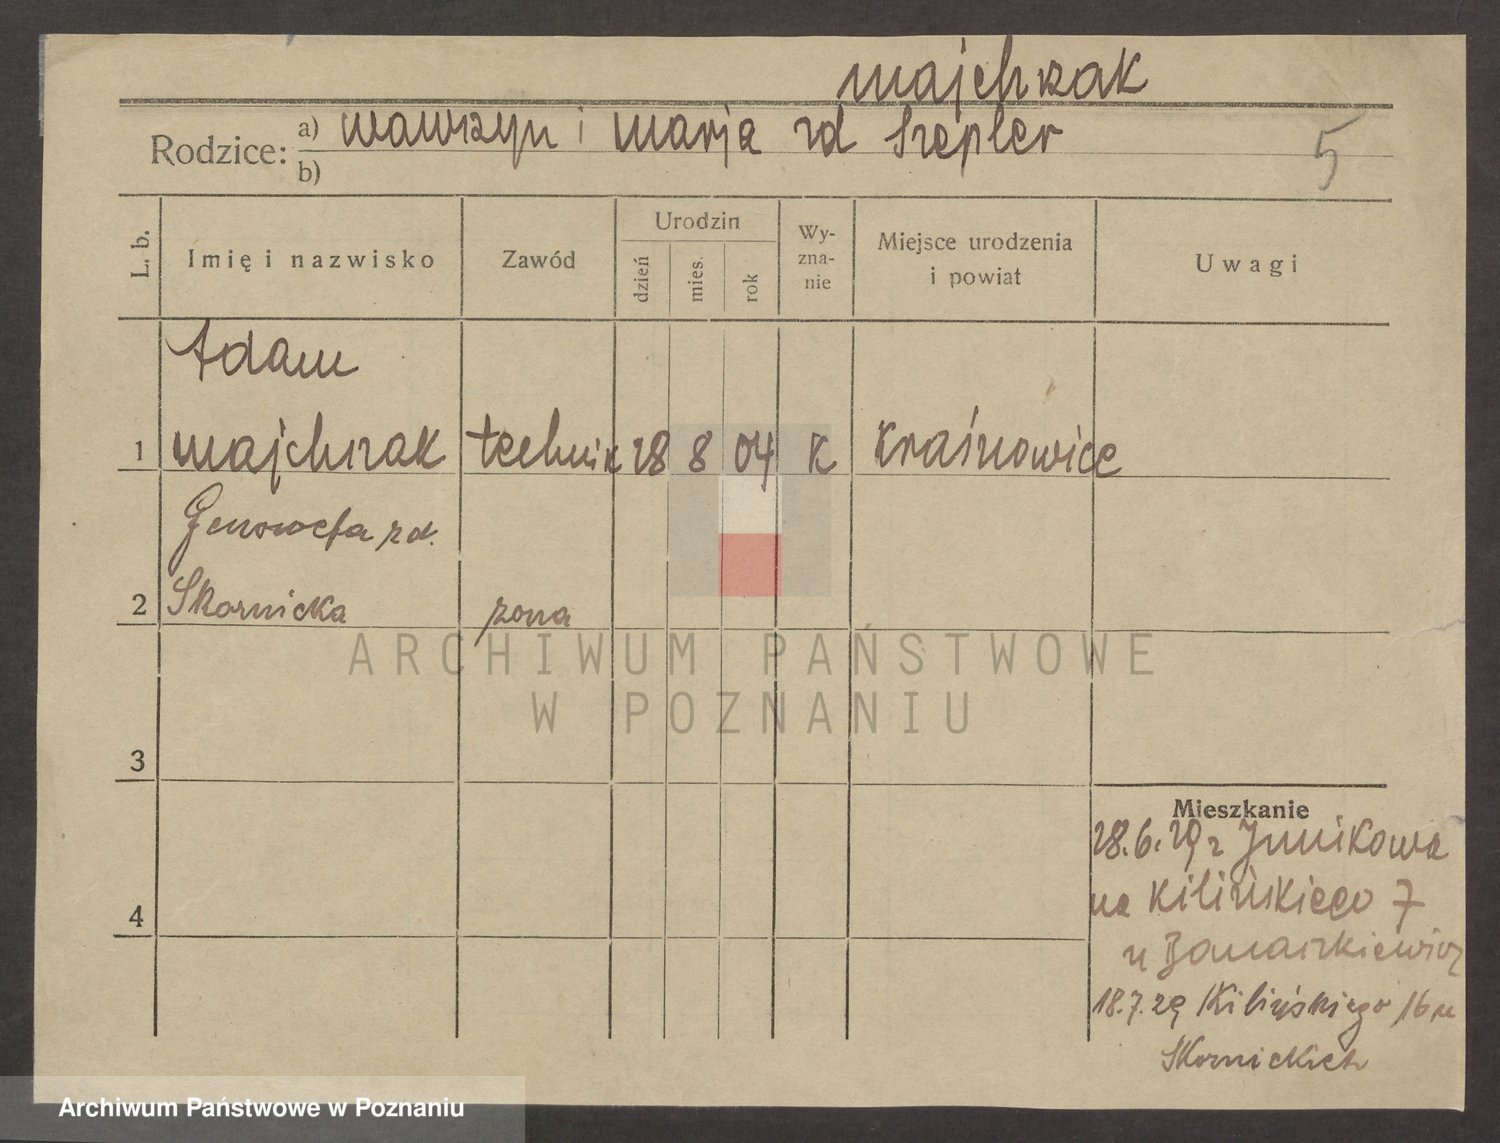 majchrzak
Rodzice: a) wawrzyn i marja zd Szepler
b)
5
L. b.
Imię i nazwisko
Zawód
Urodzin
dzień
mies.
rok
Wy-
zna-
nie
Miejsce urodzenia
i powiat
Uwagi
Adam
1 majchrzak technik 28 8 04 K
Genowefa zd.
2 Skornicka żona
ARCHIWUM PAŃSTWOWE
W POZNANIU
3
Mieszkanie
28.6.29 z Junikowa
na Kilińskiego 7
4
u Banaszkiewicz
18.7.29 Kilińskiego 16 u
Skornickich
Archiwum Państwowe w Poznaniu